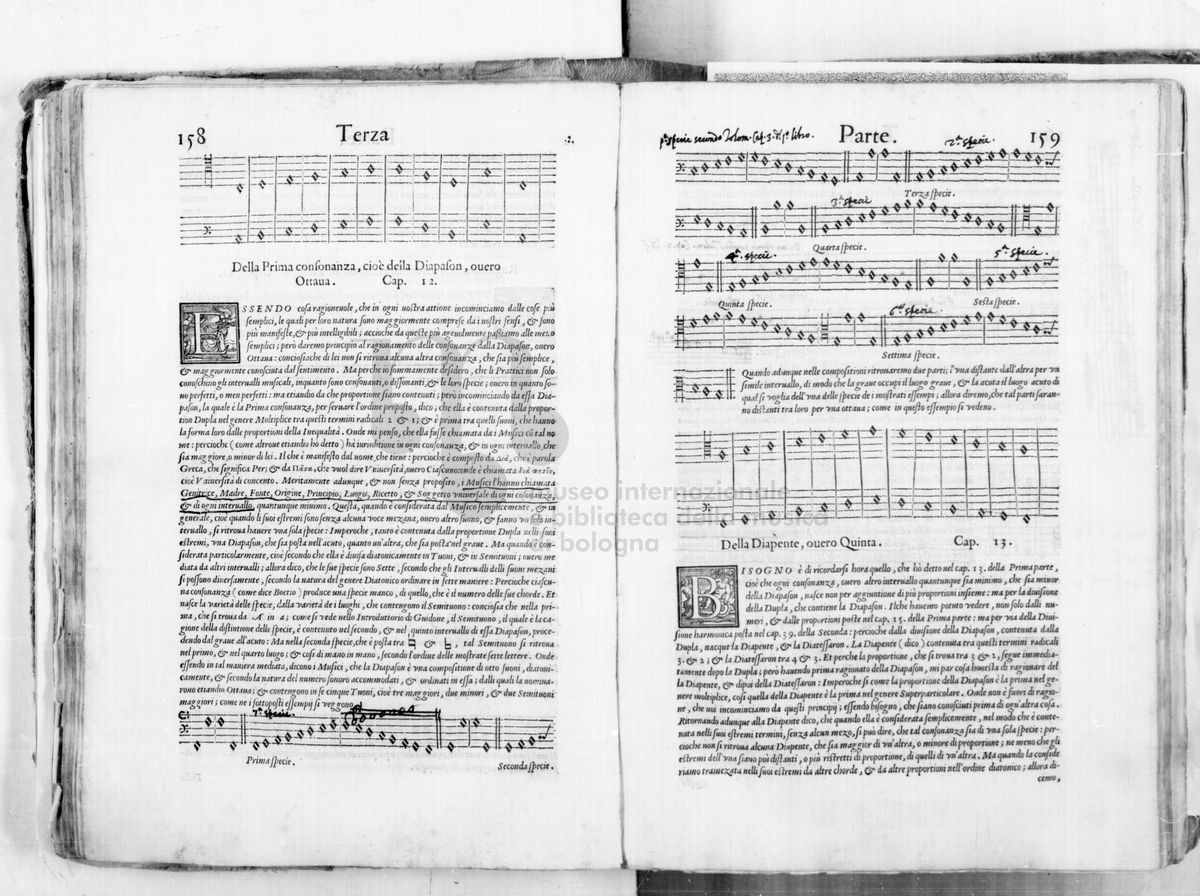 158 Terza
Della Prima consonanza, cioè della Diapason, ouero
Ottaua. Cap. 12.
ESSENDO cosa ragioneuole, che in ogni nostra attione incominciamo dalle cose più
semplici, le quali per loro natura sono maggiormente comprese da i nostri sensi, & sono
più manifeste, & più intelligibili; accioche da queste più ageuolmente passiamo alle meno
semplici; però daremo principio al ragionamento delle consonanze dalla Diapason, ouero
Ottaua: conciosiache di lei non si ritroua alcuna altra consonanza, che sia più semplice,
& maggiormente conosciuta dal sentimento. Ma perche io sommamente desidero, che li Prattici non solo
conoschino gli interualli musicali, inquanto sono consonanti, o dissonanti, & le loro specie; ouero in quanto so-
no perfetti, o men perfetti: ma etiandio da che proportione siano contenuti; però incominciando da essa Dia-
pason, la quale è la Prima consonanza, per seruare l'ordine proposto, dico; che ella è contenuta dalla propor-
tion Dupla nel genere Moltiplice tra questi termini radicali 2 & 1; & è prima tra quelli suoni, che hanno
la forma loro dalle proportioni della Inequalità. Onde mi penso, che ella fusse chiamata da i Musici cō tal no
me: percioche (come altroue etiandio hò detto) hà iurisdittione in ogni consonanza, & in ogni interuallo, che
sia maggiore, o minor di lei. Il che è manifesto dal nome, che tiene: percioche è composto da Διὰ, che è parola
Greca, che significa Per; & da Πᾶσα, che vuol dire Vniuersità, ouero Ciascuno: onde è chiamata
cioè Vniuersità di concento. Meritamente adunque, & non senza proposito, i Musici l'hanno chiamata
Genitrice, Madre, Fonte, Origine, Principio, Luogo, Ricetto, & Soggetto vniuersale di ogni cōsonanza,
& di ogni interuallo, quantunque minimo. Questa, quando è considerata dal Musico semplicemente, & in
generale, cioè quando li suoi estremi sono senza alcuna voce mezana, ouero altro suono, & fanno vn solo in-
teruallo, si ritroua hauere vna sola specie: Imperoche, tanto è contenuta dalla proportione Dupla nelli suoi
estremi, vna Diapason, che sia posta nell'acuto, quanto vn'altra, che sia posta nel graue. Ma quando è con-
siderata particolarmente, cioè secondo che ella è diuisa diatonicamente in Tuoni, & in Semituoni; ouero me
diata da altri interualli; allora dico, che le sue specie sono Sette, secondo che gli Interualli delli suoni mezani
si possono diuersamente, secondo la natura del genere Diatonico ordinare in sette maniere: Percioche ciascu-
na consonanza (come dice Boetio) produce vna specie manco, di quello, che è il numero delle sue chorde. Et
nasce la varietà delle specie, dalla varietà de i luoghi, che contengono il Semituono: conciosia che nella pri-
ma, che si troua da A in a; come si vede nello Introdutorio di Guidone, il Semituono, il quale è la ca-
gione della distintione delle specie, è contenuto nel secondo, & nel quinto interuallo di essa Diapason, proce-
dendo dal graue all'acuto: Ma nella seconda specie, che è posta tra ♮ & ♮, tal Semituono si ritroua
nel primo, & nel quarto luogo; & cosi di mano in mano, secondo l'ordine delle mostrate sette lettere. Onde
essendo in tal maniera mediata, dicono i Musici, che la Diapason è vna compositione di otto suoni, diatoni-
camente, & secondo la natura del numero sonoro accommodati, & ordinati in essa; dalli quali la nomina-
rono etiandio Ottaua; & contengono in se cinque Tuoni, cioè tre maggiori, due minori, & due Semituoni
maggiori; come ne i sottoposti essempij si veggono.
7.a specie.
Prima specie. Seconda specie.
pa specie secondo Tolom. Cap. 3. del 2º libro. Parte. 2.a specie. 159
Terza specie.
3.a specie
Quarta specie.
4.a specie. 5.a specie.
Quinta specie. Sesta specie.
6.a specie.
Settima specie.
Quando adunque nelle compositioni ritrouaremo due parti; l'vna distante dall'altra per vn
simile interuallo, di modo che la graue occupi il luogo graue, & la acuta il luogo acuto di
qual si voglia dell'vna delle specie de i mostrati essempi; allora diremo, che tal parti saran-
no distanti tra loro per vna ottaua; come in questo essempio si vedeno.
Della Diapente, ouero Quinta. Cap. 13.
BISOGNO è di ricordarsi hora quello, che hò detto nel cap. 13. della Prima parte,
cioè che ogni consonanza, ouero altro interuallo quantunque sia minimo, che sia minor
della Diapason, nasce non per aggiuntione di più proportioni insieme: ma per la diuisione
della Dupla, che contiene la Diapason. Ilche hauemo potuto vedere, non solo dalli nu-
meri, & dalle proportioni poste nel cap. 15. della Prima parte: ma per via della Diui-
sione harmonica posta nel cap. 39. della Seconda: percioche dalla diuisione della Diapason, contenuta dalla
Dupla, nacque la Diapente, & la Diatessaron. La Diapente (dico) contenuta tra questi termini radicali
3. & 2; & la Diatessaron tra 4 & 3. Et perche la proportione, che si troua tra 3 & 2, segue immedia-
tamente dopo la Dupla; però hauendo prima ragionato della Diapason, mi par cosa honesta di ragionare del
la Diapente, & dipoi della Diatessaron: Imperoche si come la proportione della Diapason è la prima nel ge-
nere moltiplice, cosi quella della Diapente è la prima nel genere Superparticolare. Onde non è fuori di ragio-
ne, che noi incominciamo da questi principij; essendo bisogno, che siano conosciuti prima di ogni altra cosa.
Ritornando adunque alla Diapente dico, che quando ella è considerata semplicemente, nel modo che è conte-
nuta nelli suoi estremi termini, senza alcun mezo, si può dire, che tal consonanza sia di vna sola specie: per-
cioche non si ritroua alcuna Diapente, che sia maggior di vn'altra, o minore di proportione; ne meno che gli
estremi dell'vna siano più distanti, o più ristretti di proportione, di quelli di vn'altra. Ma quando la conside
riamo tramezata nelli suoi estremi da altre chorde, & da altre proportioni nell'ordine diatonico; allora di-
cemo,
museo internazionale
biblioteca della musica
bologna